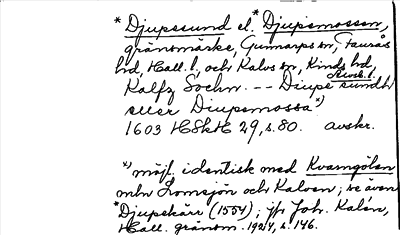 * Djupesund el. * Djupsmossen,
gränsmärke, Gunnarps sn, Faurås
hd, Hall. l, och Kalvs sn, Kinds hd,
Älvsb. l.
Kalfz Sochn. -- Diupe sundh
eller Diupsmossa *)
1603 HSkH 29, s. 80. avskr.
*) möjl. identisk med Kvarngölen
mln Lomsjön och Kalven; se även
*Djupekärr (1554); jfr Joh. Kalén,
Hall. gränsm. 1924, s. 146.